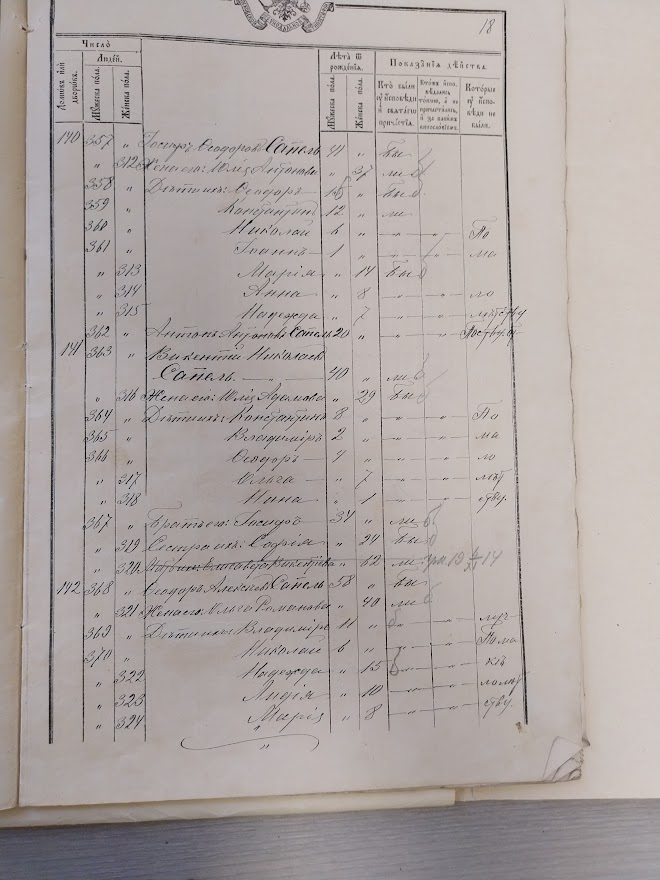 18
Число
Людей.
Лѣта ѿ рожденїя.
Показанїя дѣйства.
Домовъ или дворовъ.
Мꙋжеска пола.
Женска пола.
Мꙋжеска пола.
Женска пола.
Кто были оу исповѣди и свѧтаго причастїѧ.
Которые оу исповѣди не были.
140 357 " Іосифъ Ѳеодоровъ Сапель 41 " бы
" 312 Жена его: Юлія Антонова " 37 ли
358 " Дѣти ихъ: Ѳеодоръ 15 " бы
359 Константинъ 12 " ли
360 " Николай 6 " " " По
361 " Іоаннъ 1 " " " ма
" 313 Марія " 14 бы
" 314 Анна " 8 " " ло
" 315 Надежда " 7 " " лѣтству
362 " Антонъ Антоновъ Сапель 20 " " "
141 363 " Викентій Николаевъ
Сапель. 40 " ли
" 316 Жена его: Юлія Адамова " 29 бы
364 " Дѣти ихъ: Константинъ 8 " " " По
365 " Владиміръ 2 " " " ма
366 " Ѳеодоръ 4 " " " ло
" 317 Ольга " 7 " " лѣт
" 318 Нина " 1 " " ству.
367 " Братъ его: Іосифъ 34 " ли
" 319 Сестра ихъ: Софія " 24 бы
" 320 Елисавета Викентіева " 62 ли 19 14
142 368 " Ѳеодоръ Алексѣевъ Сапель 38 " бы
" 321 Жена его: Ольга Романова " 40 ли
369 " Дѣти ихъ: Владиміръ 11 "
370 " Николай 6 " " " Пома
" 322 Надежда " 15
" 323 Лидія " 10 " "
" 324 Марія " 8 " " ству.